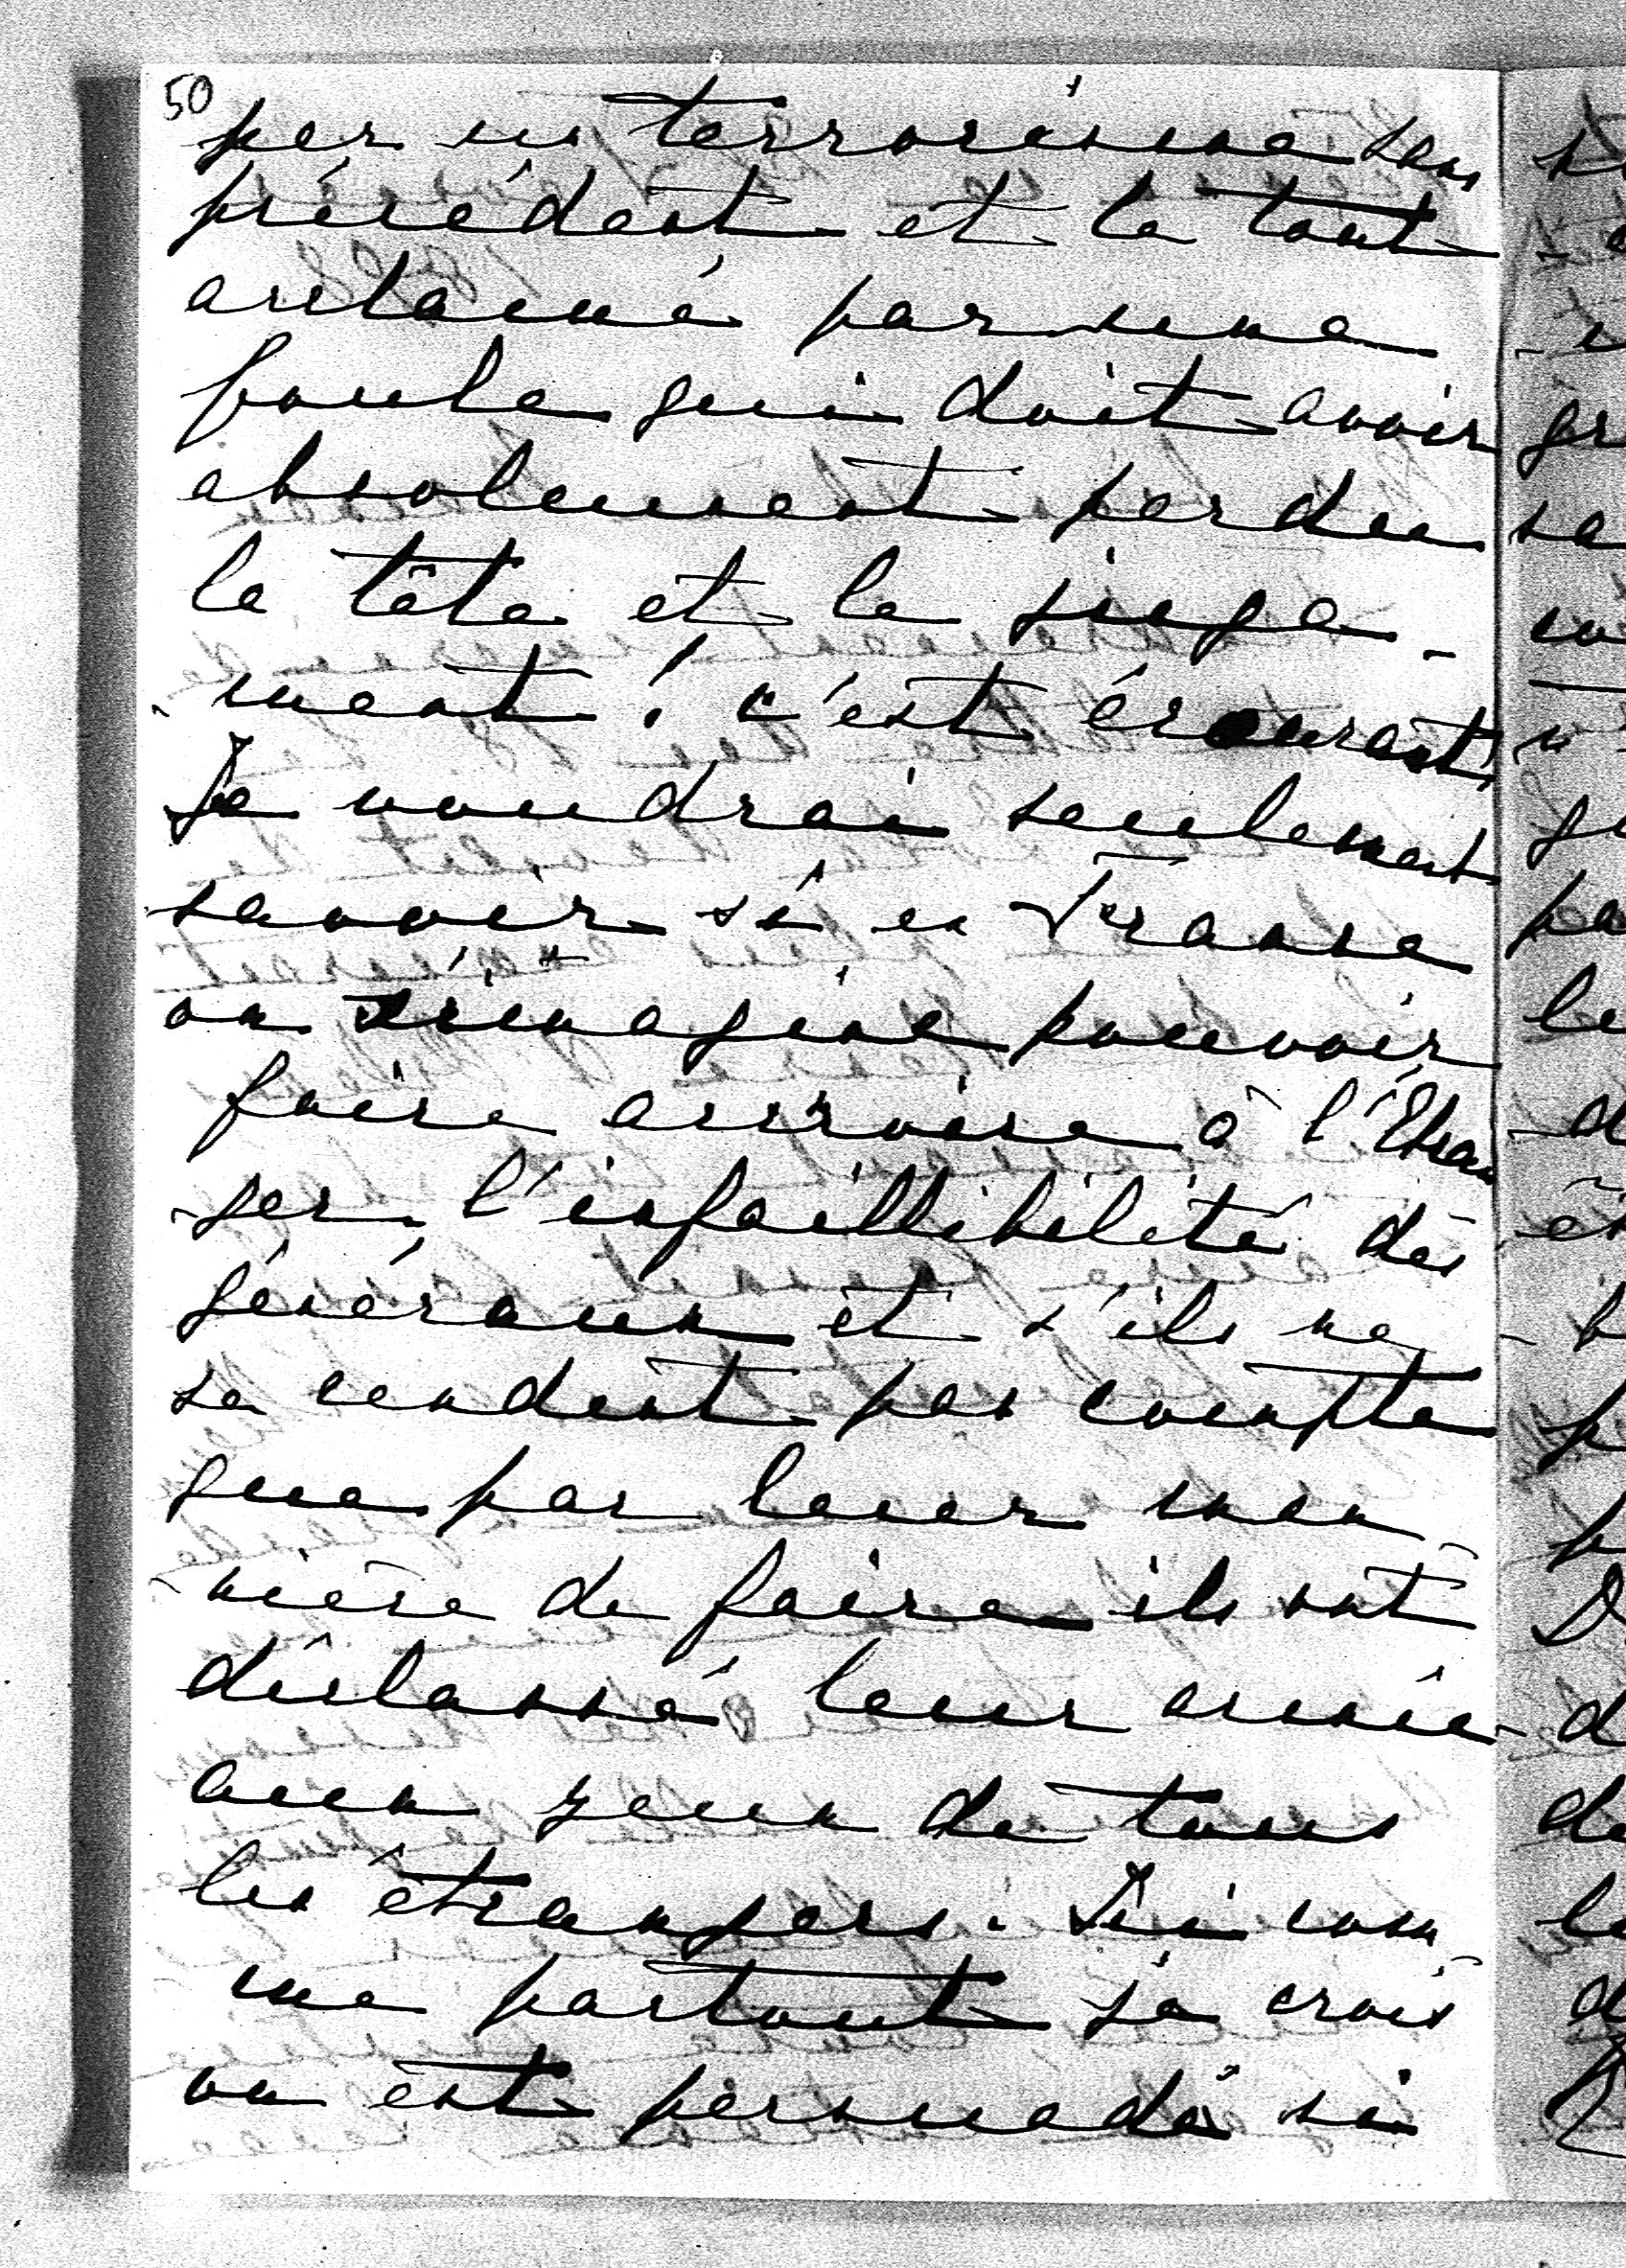 50
par un terrorisme sans
précédent et le tout
acclamé par une
foule qui doit avoir
absolument perdu
la tête et le juge-
-ment! c'est écœurant!
Je voudrai seulement
savoir si en France
on s'imagine pouvoir
faire accroire à l'Etran
-ger, l'infaillibilité des
généraux et s'ils ne
se rendent pas compte
que par leur ma-
-nière de faire ils ont
déclassé leur armée
aux yeux de tous
les étrangers. Ici com
me partout je crois
on est persuadé si